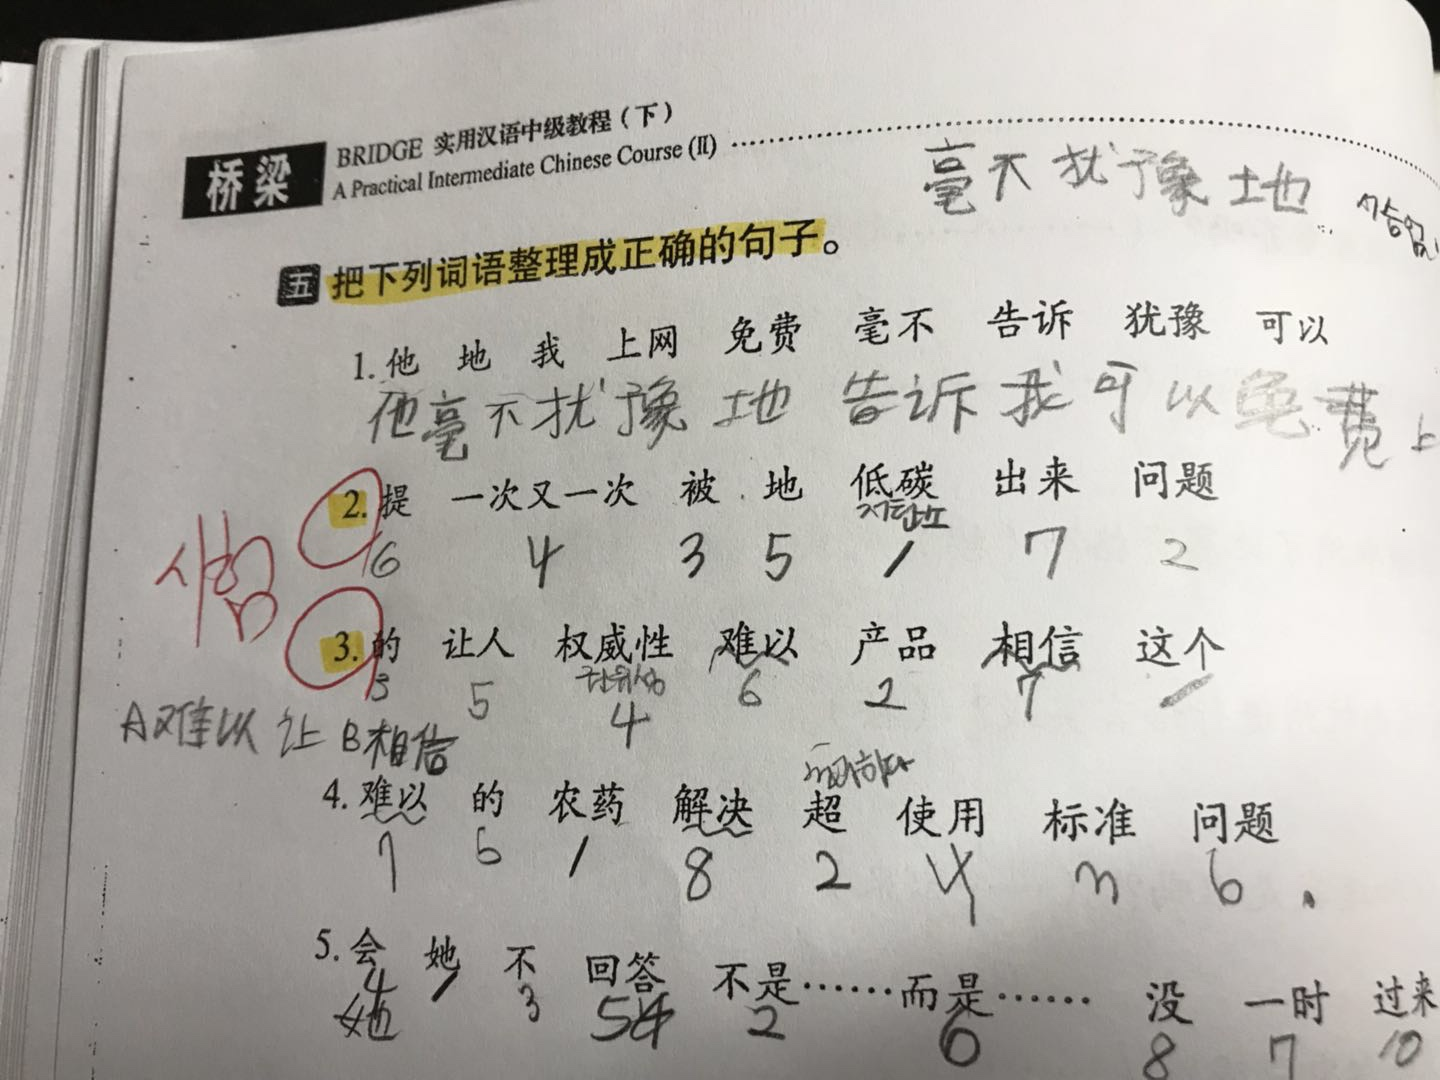 桥梁 BRIDGE 实用汉语中级教程（下）
A Practical Intermediate Chinese Course (Ⅱ)
毫不犹豫地
五 把下列词语整理成正确的句子。
1. 他 地 我 上网 免费 毫不 告诉 犹豫 可以
他毫不犹豫地告诉我可以免费上
2. 提 一次又一次 被 地 低碳 出来 问题
6 4 3 5 1 7 2
3. 的 让人 权威性 难以 产品 相信 这个
3 5 4 6 2 7 1
A难以让B相信
4. 难以 的 农药 解决 超 使用 标准 问题
7 6 1 8 2 4 3 6
5. 会 她 不 回答 不是……而是…… 没 一时 过来
4 1 3 5 2 6 8 7 10
她